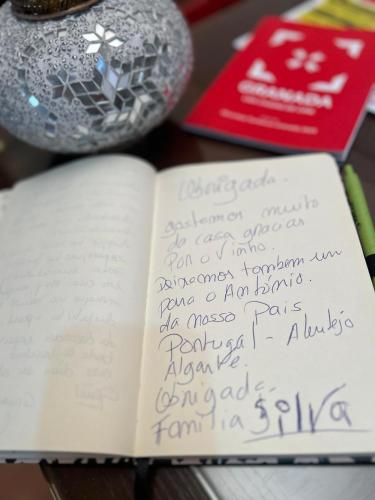 GRANADA
Obrigada.
gostemos muito
da casa gracias
Por o Vinho.
Deixemos também um
para o António.
da nosso Pais
Portugal - Alentejo
Algarve.
Obrigada.
Familia Silva